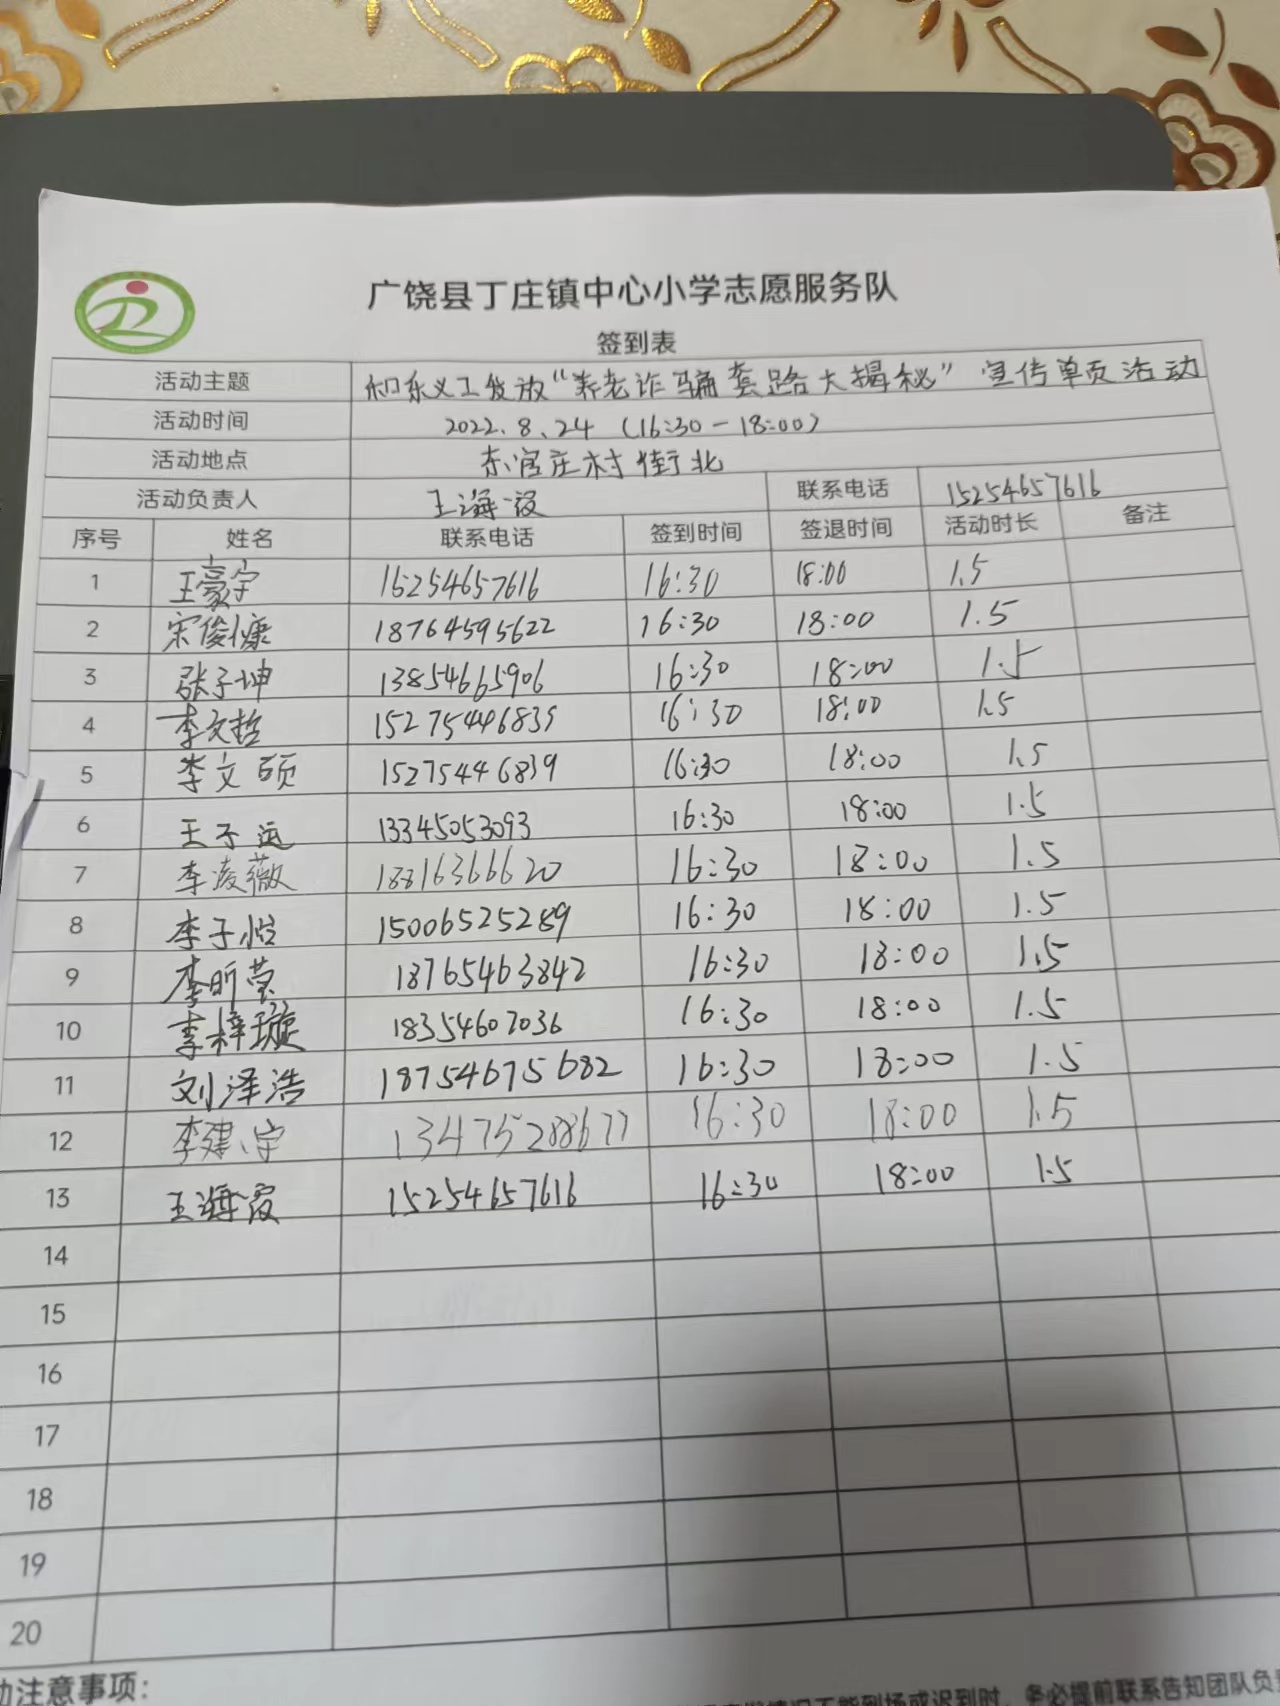 广饶县丁庄镇中心小学志愿服务队
签到表
活动主题 和东义工发放“养老诈骗套路大揭秘”宣传单页活动
活动时间 2022.8.24 (16:30-18:00)
活动地点 东官庄村街北
活动负责人 王海霞 联系电话 15254657616
序号 姓名 联系电话 签到时间 签退时间 活动时长 备注
1 王豪宇 15254657616 16:30 18:00 1.5
2 宋俊慷 18764595622 16:30 18:00 1.5
3 张子坤 13854665906 16:30 18:00 1.5
4 李文哲 15275446839 16:30 18:00 1.5
5 李文硕 15275446839 16:30 18:00 1.5
6 王子远 13345053093 16:30 18:00 1.5
7 李凌薇 18816366620 16:30 18:00 1.5
8 李子怡 15006525289 16:30 18:00 1.5
9 李昕莹 18765463842 16:30 18:00 1.5
10 李梓璇 18354602036 16:30 18:00 1.5
11 刘泽浩 18754675682 16:30 18:00 1.5
12 李建宇 13475288677 16:30 18:00 1.5
13 王海霞 15254657616 16:30 18:00 1.5
14
15
16
17
18
19
20
动注意事项：
不能到场或迟到时，务必提前联系告知团队负责